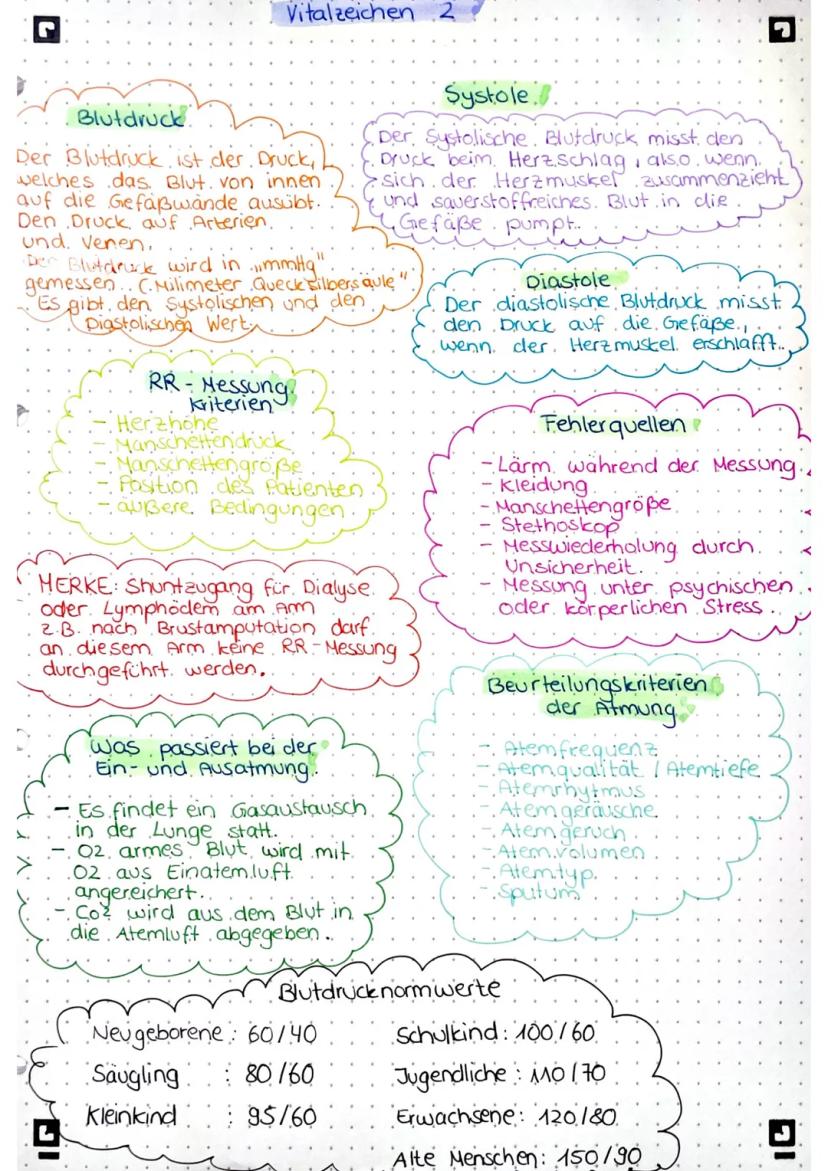 Vitalzeichen 2
Blutdruck
Der Blutdruck ist der Druck,
welches das Blut von innen
auf die Gefäßwände ausübt.
Den Druck auf Arterien
und Venen.
Der Blutdruck wird in „mmHg"
gemessen. (Milimeter Quecksilbersäule"
Es gibt den Systolischen und den
Diastolischen Wert.
Systole
Der Systolische Blutdruck misst den
Druck beim Herzschlag, also wenn
sich der Herzmuskel zusammenzieht
und sauerstoffreiches Blut in die
Gefäße pumpt.
Diastole
Der diastolische Blutdruck misst
den Druck auf die Gefäße,
wenn der Herzmuskel erschlafft.
RR-Messung
Kriterien
- Herzhöhe
- Manschettendruck
- Manschettengröße
- Position des Patienten
- äußere Bedingungen
Fehlerquellen
- Lärm während der Messung
- Kleidung
- Manschettengröße
- Stethoskop
- Messwiederholung durch
Unsicherheit.
- Messung unter psychischen
oder körperlichen Stress.
MERKE: Shuntzugang für Dialyse
oder Lymphödem am Arm
z.B. nach Brustamputation darf
an diesem Arm keine RR-Messung
durchgeführt werden.
Beurteilungskriterien
der Atmung
- Atemfrequenz
- Atemqualität / Atemtiefe
- Atemrhytmus
- Atemgeräusche
- Atemgeruch
- Atemvolumen
- Atemtyp
- Sputum
Was passiert bei der
Ein- und Ausatmung
- Es findet ein Gasaustausch
in der Lunge statt.
- O2 armes Blut wird mit
O2 aus Einatemluft
angereichert.
- CO2 wird aus dem Blut in
die Atemluft abgegeben.
Blutdrucknormwerte
Neugeborene : 60/40
Säugling : 80/60
Kleinkind : 95/60
Schulkind : 100/60
Jugendliche : 110/70
Erwachsene : 120/80
Alte Menschen : 150/90